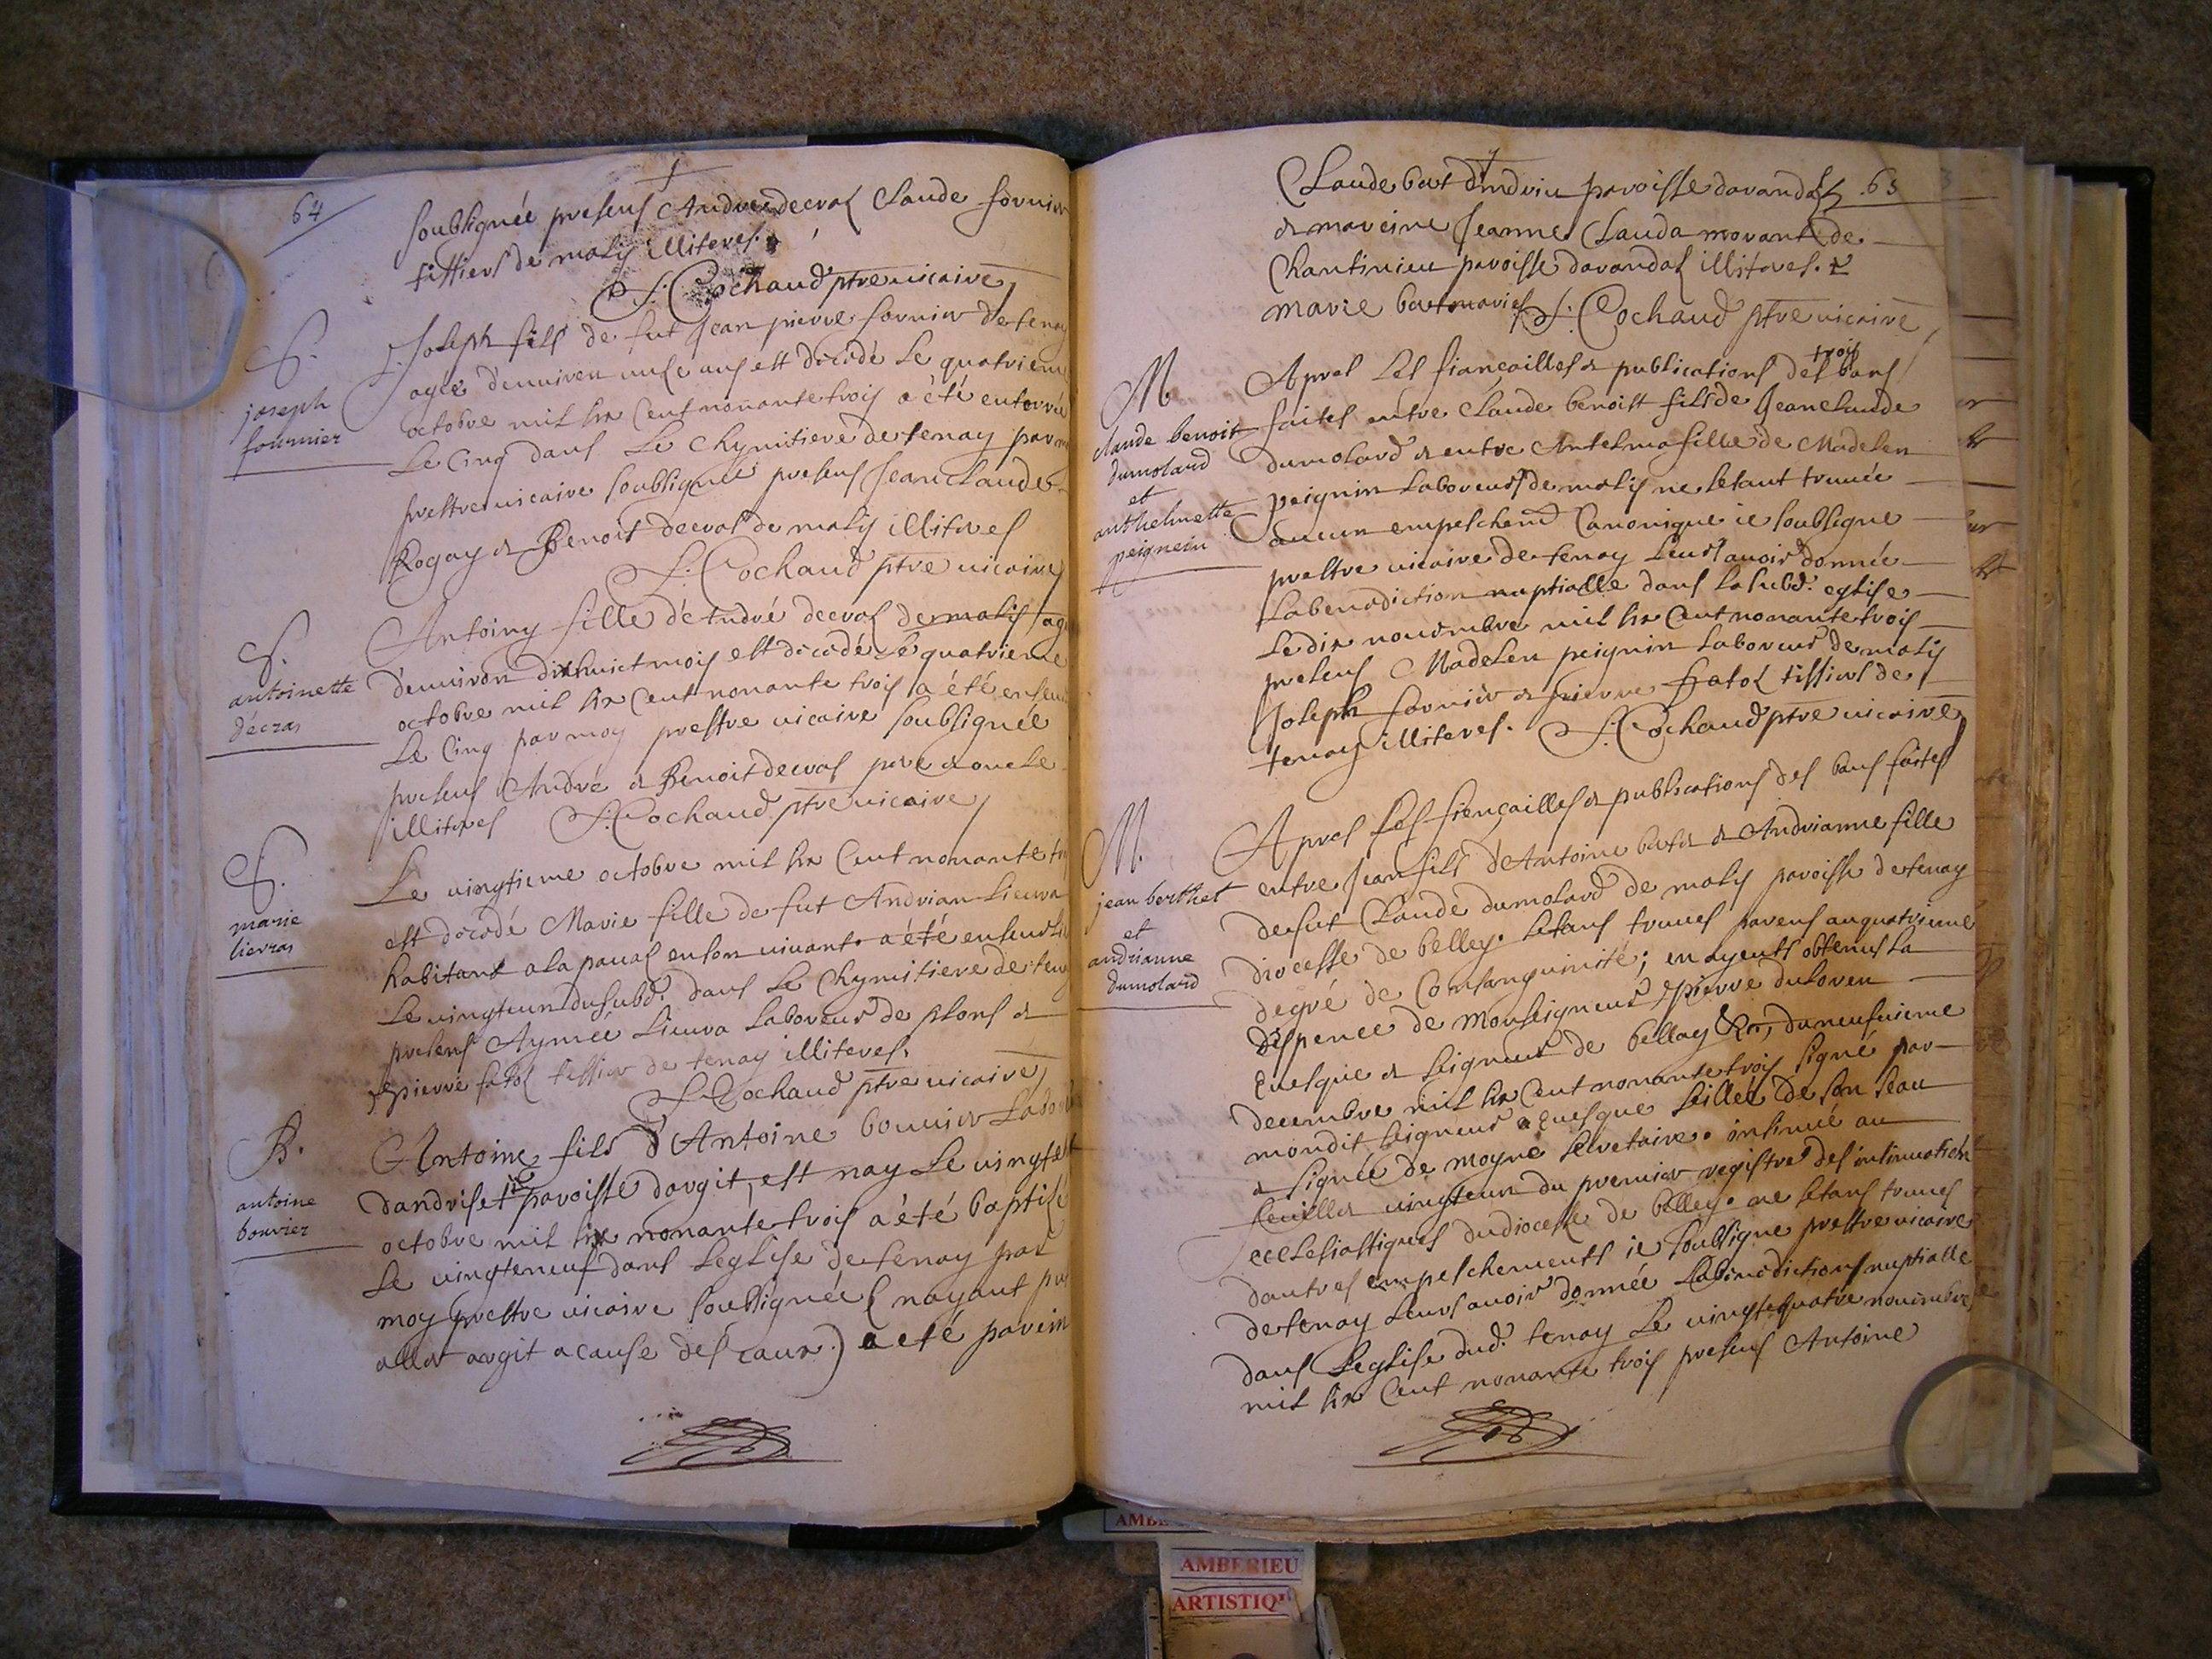 64
soubsignée presens Andree decras Claude fornier
tissiers de malis illiteres.
S. Cochaud ptre vicaire
S.
joseph
fournier
Joseph fils de fut Jean pierre fornier de tenay
agée denuiron unse ans est décédé Le quatrieme
octobre mil six Cent nonante trois a été enterrée
Le Cinq dans Le Chymitiere de tenay par
prestre vicaire soubsignée presens Jean Claude
Rogay & Benoit decras de malis illiteres
S. Cochaud ptre vicaire
S.
antoinette
décras
Antoiny fille d'André decras de malis
denuiron dixhuict mois est décédé Le quatrieme
octobre mil six Cent nonante trois a été
Le Cinq par moy prestre vicaire soubsignée
presens André & Benoit decras pere & oncle
illiteres S. Cochaud ptre vicaire
S.
marie
lievras
Le vingtieme octobre mil six Cent nonante
est décédé Marie fille de fut Andrian Lieura
habitant a la en son vivant. a été
Le vingteun dusubd. dans Le Chymitiere de
presens Aymée Lieura Laboreur de plons &
& pierre fatol tissier de tenay illiteres.
S. Cochaud ptre vicaire
B.
antoine
bouvier
Antoine fils d'Antoine bouuier
dandriset paroisse dargit, est nay Le
octobre mil six nonante trois a été baptisé
Le vingteneuf dans Leglise de tenay par
moy prestre vicaire soubsignée (nayant pu
aller argit a cause des eaux.) a eté parein
65
Claude bert d'Indrieu paroisse darandas
& mareine Jeanne Clauda morant de
Chantinieu paroisse darandas illiteres. &
marie bert
S. Cochaud ptre vicaire
M.
claude benoit
dumolard
et
anthelmette
peignein
trois
Apres Les fiançailles & publications des bans
faites entre Claude benoist fils de Jean Claude
dumolard & entre Antelma fille de Madelen
peignin Laboreurs de malis ne setant truuée
aucun empeschemt Canonique ie soubsigne
prestre vicaire de tenay Leurs auoir donnée
La benediction nuptialle dans La subd. eglise
Le dix nouembre mil six Cent nonante trois
presens Madelen peignin Laboreur de malis
Joseph fornier & pierre fatol tissiers de
tenay illiteres. S. Cochaud ptre vicaire
M.
jean berthet
et
andrianne
dumolard
Apres Les fiençailles & publications des bans faites
entre Jean fils d'Antoine & Andrianne fille
de fut Claude dumolard de malis paroisse de tenay
diocesse de belley. setans truués parens au quatrieme
degré de Consanguinité; en ayents obtenus La
dispence de Monseigneur pierre duloren
Euesque & seigneur de bellay &c, du neufuieme
decembre mil six Cent nonante trois signé par
mondit seigneur Euesque seillée de son seau
& signée de moyne secretaire. insinué au
feuillet vingteun du premier registre des insinuations
ecclesiastiques du diocesse de belley. ne setans truués
dautres empeschements ie soubsigne prestre vicaire
de tenay Leurs auoir donnée La benediction nuptialle
dans Leglise dud. tenay Le vingtequatre nouembre
mil six Cent nonante trois presens Antoine
AMBERIEU
ARTISTIQ